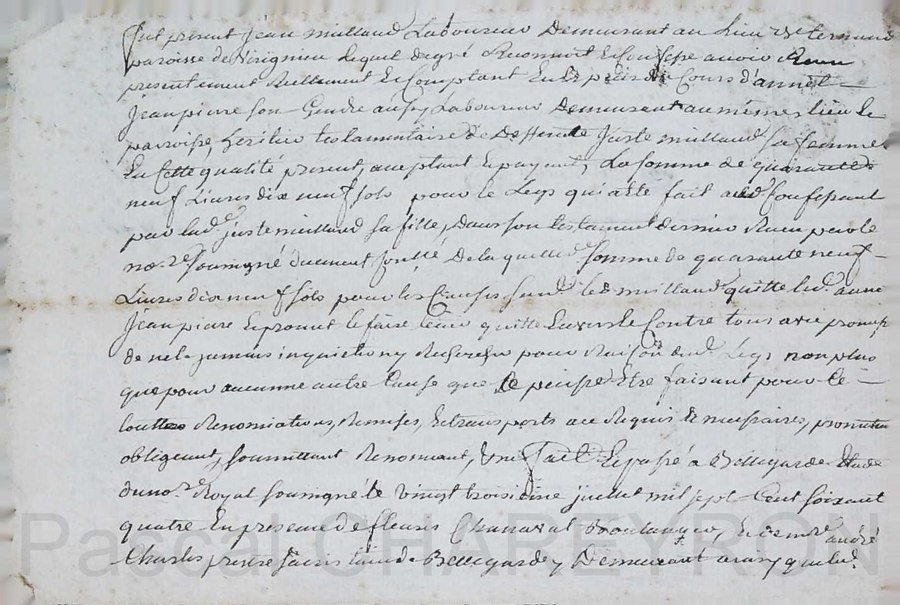 fut présent Jean millaud Laboureur Demeurant au Lieu de
paroisse de Virignieu Lequel degré Reconnoit et Confesse avoir Receu
presentement Reellement et Comptant En Espèces de Cours d'annet
Jeanpierre son Gendre aussy Laboureur Demeurent au même Lieu Ee
parroisse, heritier testamentaire de Deffuncte Juste millaud sa femme
En Cette qualité present, aceptant Epayant, La somme de quarante
neuf Livres dix neuf sols pour le Legs qui aeté fait aud Confessant
par lad.e juste millaud sa fille, Dans son testament dernier Receu par le
no.re soussigné duement Controllé De laquelle somme de quarante neuf
Livres dix neuf sols pour les Causes sus.d led millaud quitte led. anne
Jeanpierre Epromet le faire tenir quitte Envers Ee Contre tous avec promesse
de nel jamais inquietter ny Rechercher pour Raison dud. Legs non plus
que pour aucunne autre Cause que Ce puisse Etre faisant pour Ce
touttes Renonciations, Remises, Etransports ace Requis Ee necessaires, promettant
obligeant, soumettant Renonceant, &ne fait Eepassé a Bellegarde Etude
du no.re Royal soussigné le Vingt troisième juillet mil sept Cent soixant
quatre En presence de fleuris Chanavat Boulanger, Ee de m.re andré
Charles, prestre sacristain de Bellegarde y Demeurant ainsy que led.
Pascal CHAPEYRON